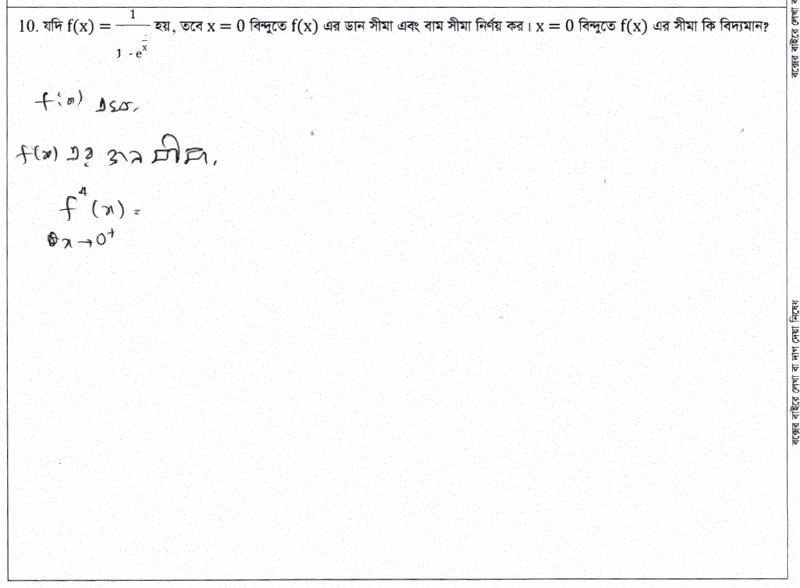 10. যদি f(x) = 1 / 1 - e^{1/x} হয়, তবে x = 0 বিন্দুতে f(x) এর ডান সীমা এবং বাম সীমা নির্ণয় কর। x = 0 বিন্দুতে f(x) এর সীমা কি বিদ্যমান?
f(x)
f(x) এর ডান সীমা,
f(x) =
x → 0⁺
বক্সের বাইরে লেখা বা দাগ দেয়া নিষেধ